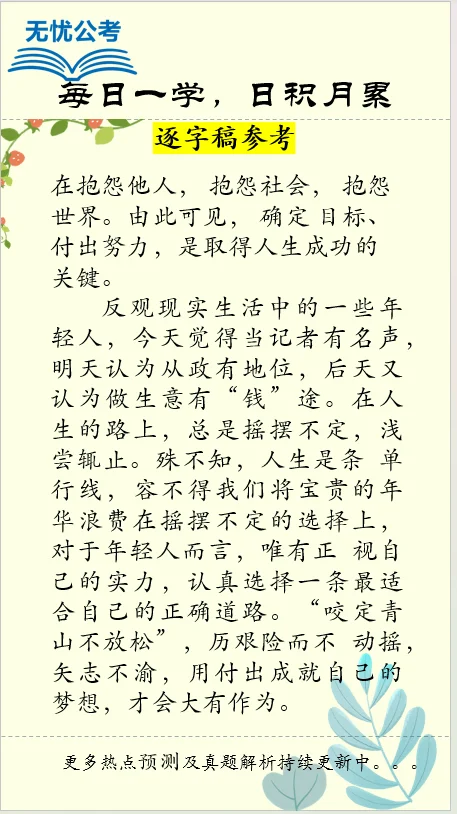 无忧公考
每日一学，日积月累
逐字稿参考
在抱怨他人， 抱怨社会， 抱怨
世界。由此可见， 确定 目标、
付出努力，是取得人生成功的
关键。
反观现实生活中的一些年
轻人，今天觉得当记者有名声，
明天认为从政有地位，后天又
认为做生意有“钱”途。在人
生的路上，总是摇摆不定，浅
尝辄止。殊不知，人生是条 单
行线，容不得我们将宝贵的年
华浪费在摇摆不定的选择上，
对于年轻人而言，唯有正 视自
己的实力，认真选择一条最适
合自己的正确道路。“咬定青
山不放松”，历艰险而不 动摇，
矢志不渝，用付出成就自己的
梦想，才会大有作为。
更多热点预测及真题解析持续更新中。。。